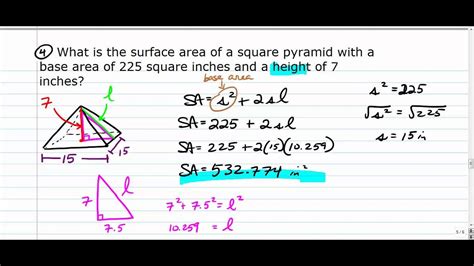 4 What is the surface area of a square pyramid with a
base area of 225 square inches and a height of 7
inches?
base area
SA = s² + 2sl
SA = 225 + 2sl
SA = 225 + 2(15)(10.259)
SA = 532.774 in²
s² = 225
√s² = √225
s = 15in
7
l
15
15
7
l
7.5
7² + 7.5² = l²
10.259 = l
5/6